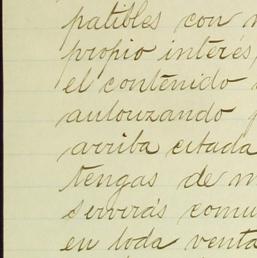 patibles con
propio interés,
el contenido
autorizando
arriba citada
tengas de
servirás comu
en toda venta